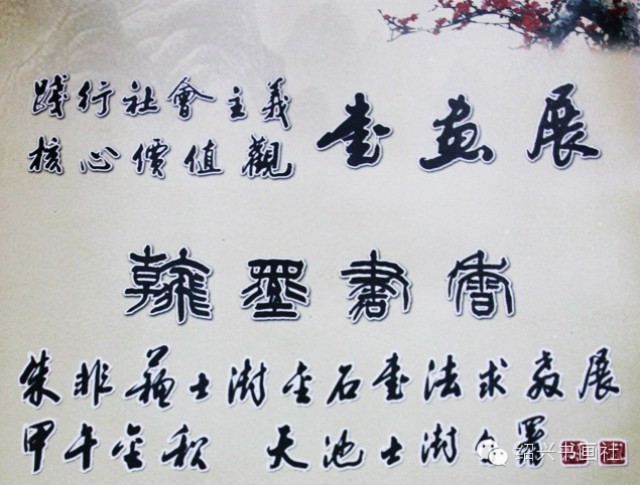 踐行社會主義
核心價值觀
書畫展
翰墨書香
朱非蘇士澍金石書法求教展
甲午金秋 天池士澍署
绍兴书画社